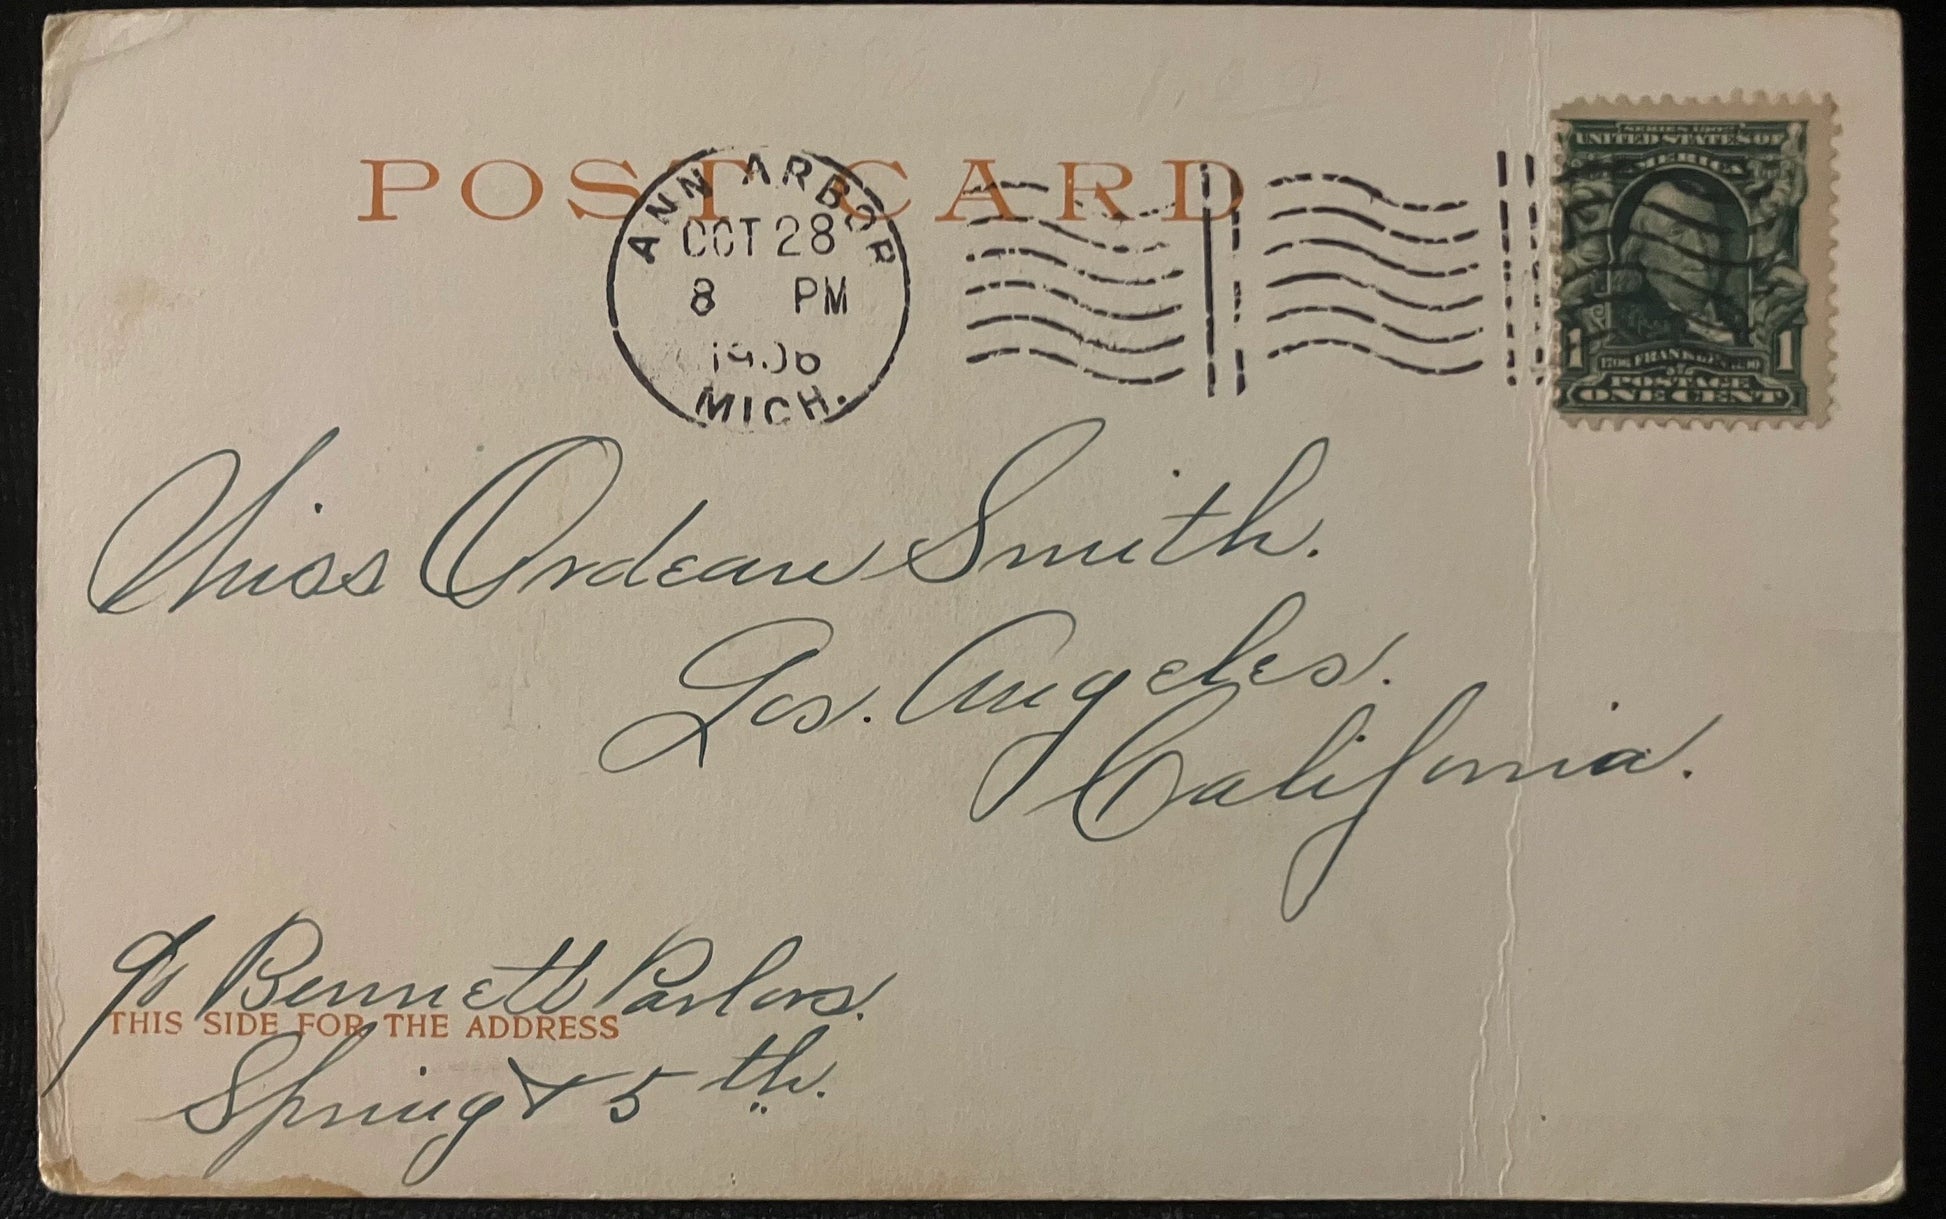 POST CARD
ANN ARBOR
OCT 28
8 PM
1906
MICH.
SERIES 1902
UNITED STATES OF
AMERICA
1 1706 FRANKLIN 1790 1
OF
POSTAGE
ONE CENT
Miss Ordean Smith.
Los. Angeles.
California.
c/o Bennett Parlors.
THIS SIDE FOR THE ADDRESS
Spring & 5th.